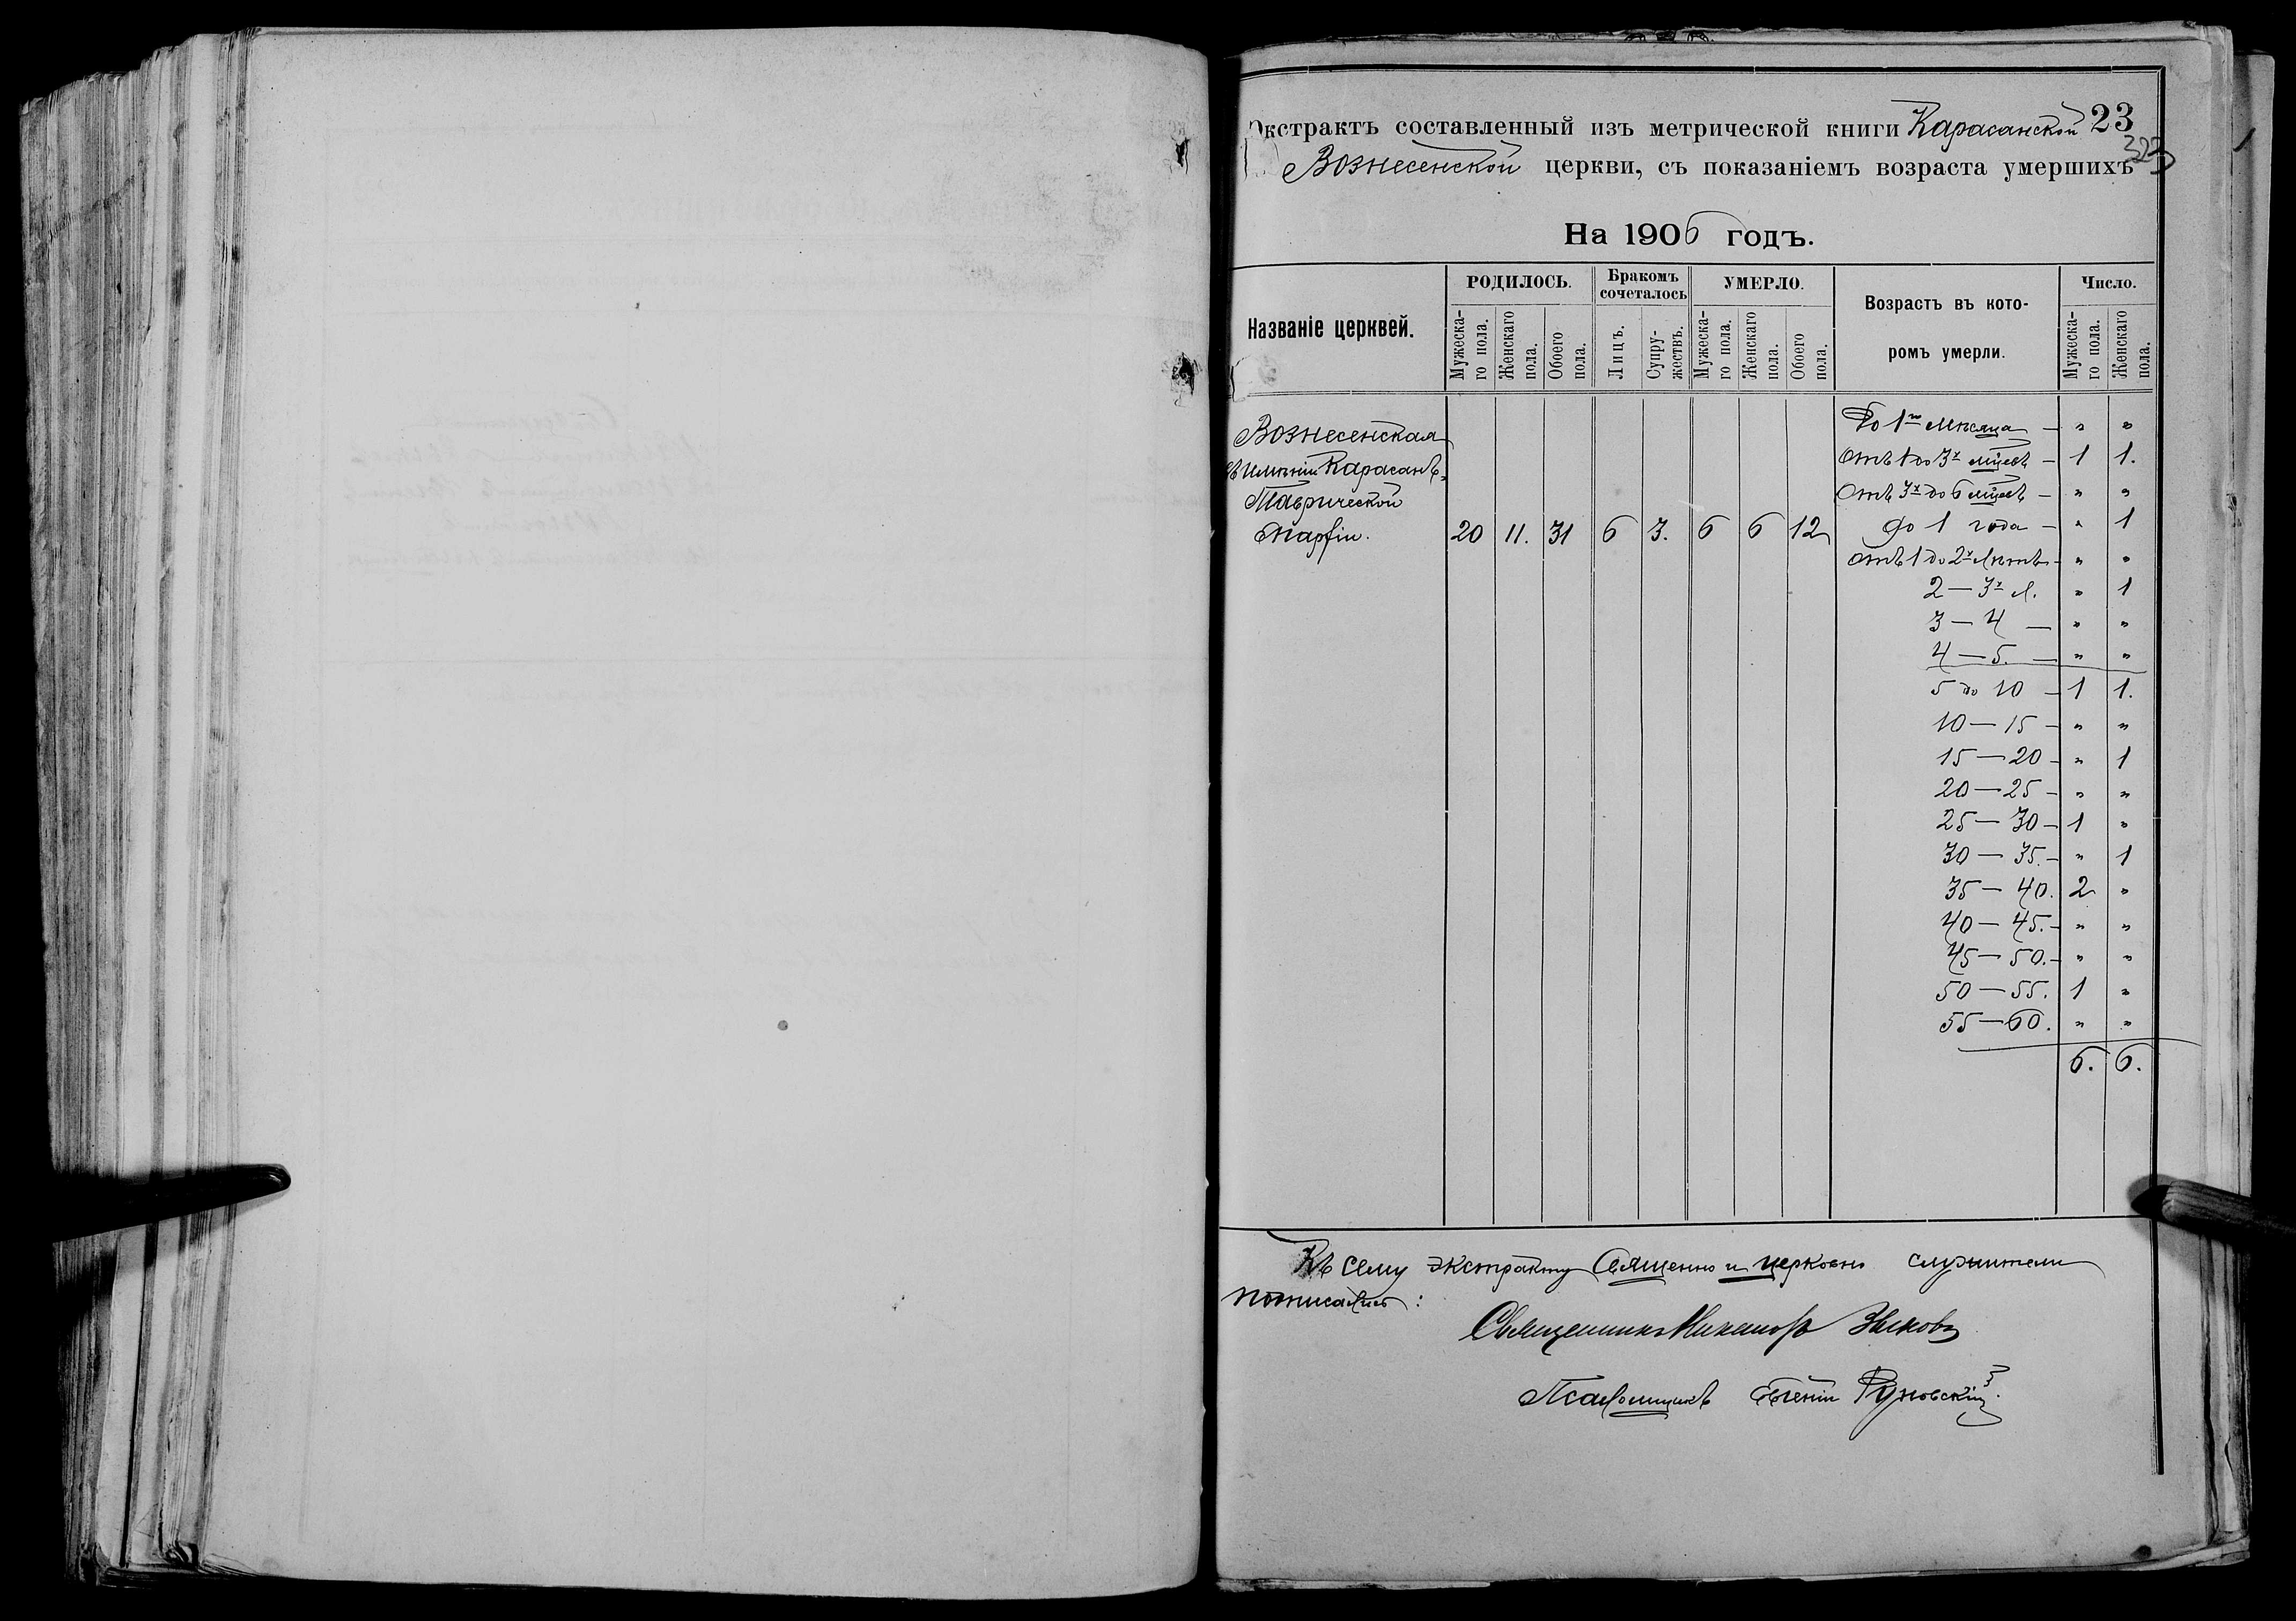 Экстрактъ составленный изъ метрической книги Карасанской 23
Вознесенской церкви, съ показаніемъ возраста умершихъ
На 1906 годъ.
Названіе церквей.
РОДИЛОСЬ.
Мужеска-го пола.
Женскаго пола.
Обоего пола.
Бракомъ сочеталось
Лицъ.
Супру-жествъ.
УМЕРЛО.
Мужеска-го пола.
Женскаго пола.
Обоего пола.
Возрастъ въ кото-
ромъ умерли.
Число.
Мужеска-го пола.
Женскаго пола.
Вознесенская
въ имѣніи Карасанъ,
Таврической
Епархіи. 20 11. 31 6 3. 6 6 12
До 1го мѣсяца — " "
Отъ 1 до 3х мцевъ — 1 1.
Отъ 3х до 6 мцевъ — " "
до 1 года — " 1
Отъ 1 до 2х лѣтъ — " "
2 — 3х л. " 1
3 — 4 — " "
4 — 5. — " "
5 до 10 — 1 1.
10 — 15 — " "
15 — 20 — " 1
20 — 25 — " "
25 — 30 — 1 "
30 — 35. — " 1
35 — 40. 2 "
40 — 45. — " "
45 — 50. — " "
50 — 55. 1 "
55 — 60. " "
6. 6.
Къ сему экстракту Священно и церковно служители
подписались:
Священникъ Никаноръ Зыковъ
Псаломщикъ Евгеній Руновскій.